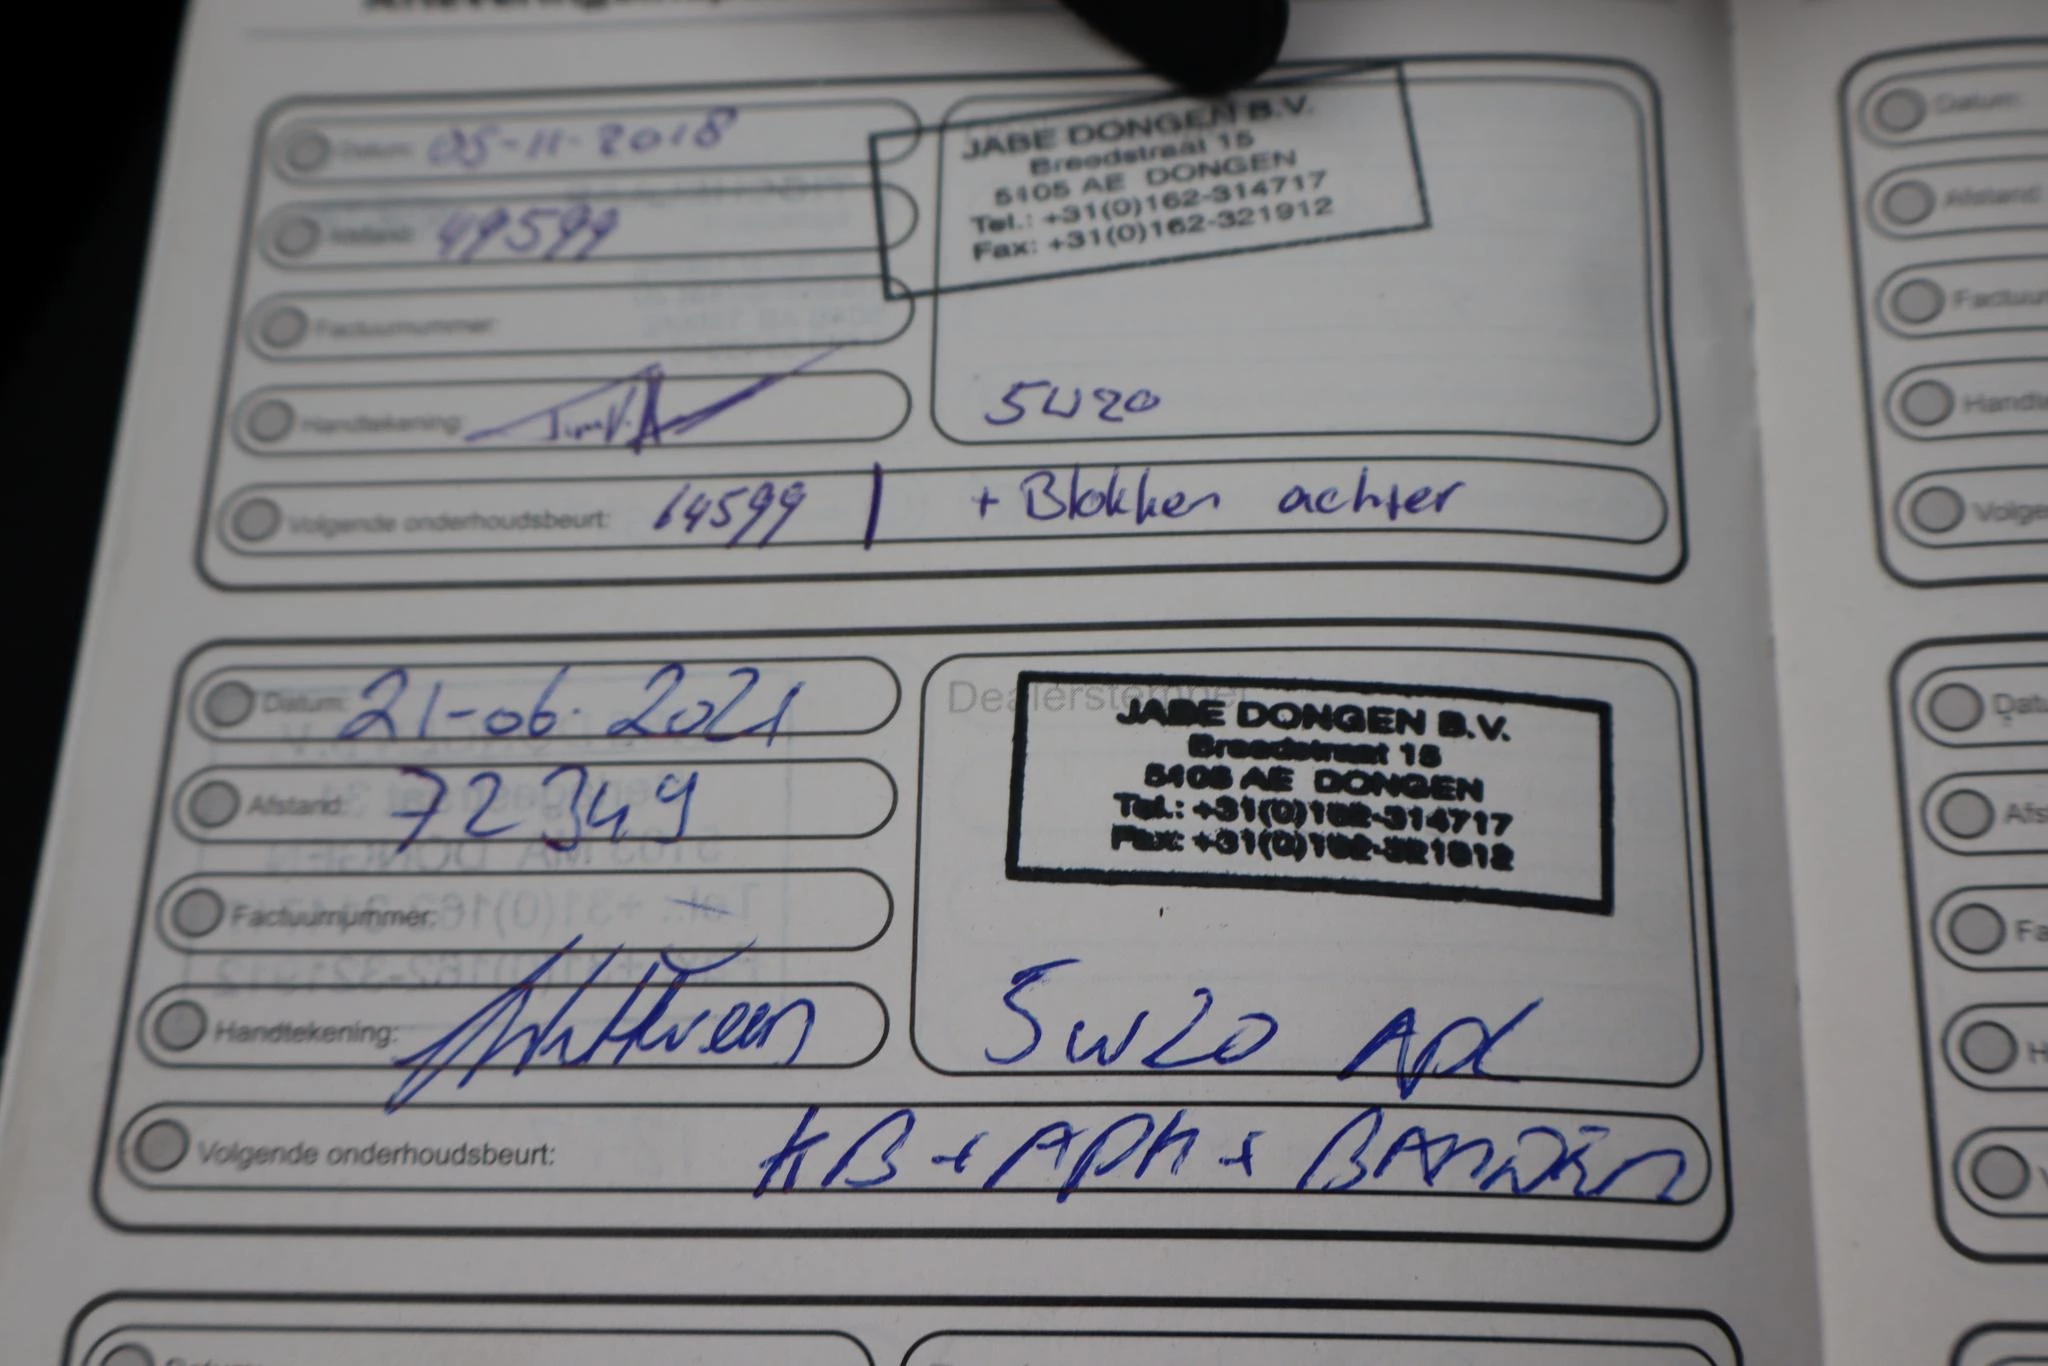 Datum: 05-11-2018
Afstand: 49599
Factuurnummer:
Handtekening:
JABE DONGEN B.V.
Breedstraat 15
5105 AE DONGEN
Tel.: +31(0)162-314717
Fax: +31(0)162-321912
5W20
Volgende onderhoudsbeurt: 64599 | + Blokken achter
Datum: 21-06-2021
Afstand: 72349
Factuurnummer:
Handtekening:
Dealerstempel
JABE DONGEN B.V.
Breedstraat 15
5105 AE DONGEN
Tel.: +31(0)162-314717
Fax: +31(0)162-321912
5W20
Volgende onderhoudsbeurt: KB + APK + BANDEN
Datum:
Afstand: